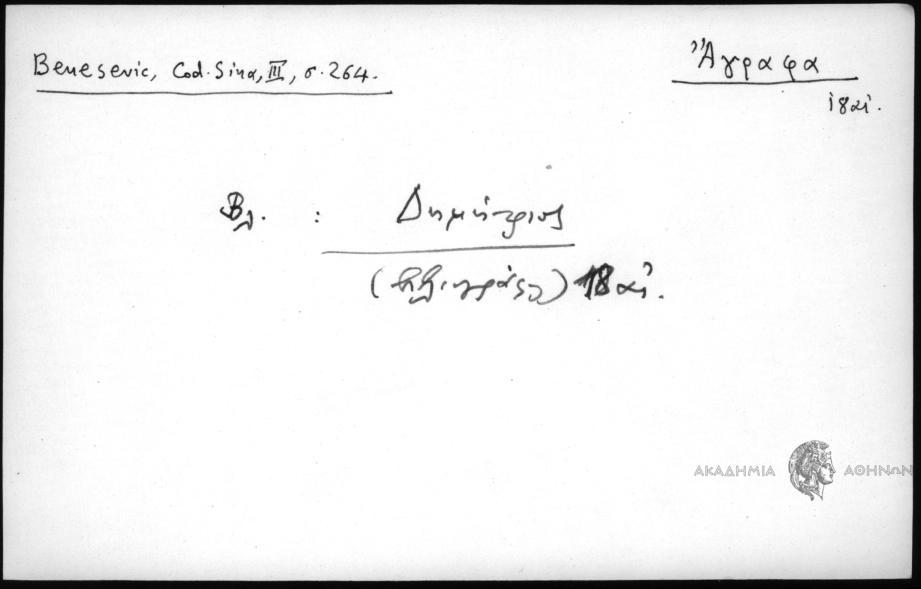 Benesevic, Cod. Sina, III, σ. 264.
Ἄγραφα
18 αἰ.
Βλ. : Δημήτριος
(βιβλιογράφος) 18 αἰ.
ΑΚΑΔΗΜΙΑ ΑΘΗΝΩΝ